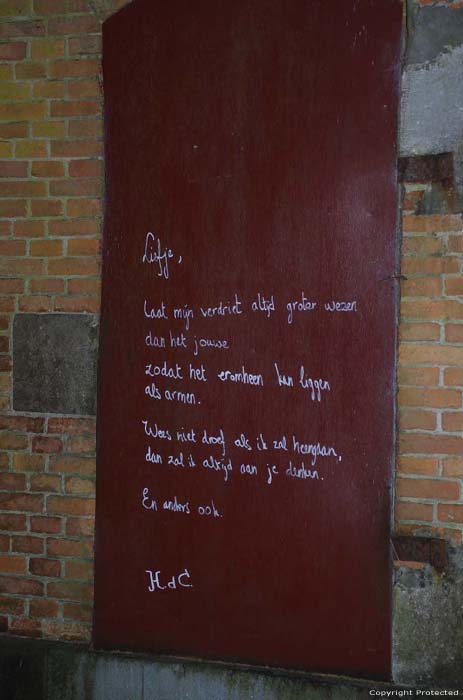 Liefje,
Laat mijn verdriet altijd groter wezen
dan het jouwe
zodat het eromheen kan liggen
als armen.
Wees niet droef als ik zal heengaan,
dan zal ik altijd aan je denken.
En anders ook.
H d C
Copyright Protected